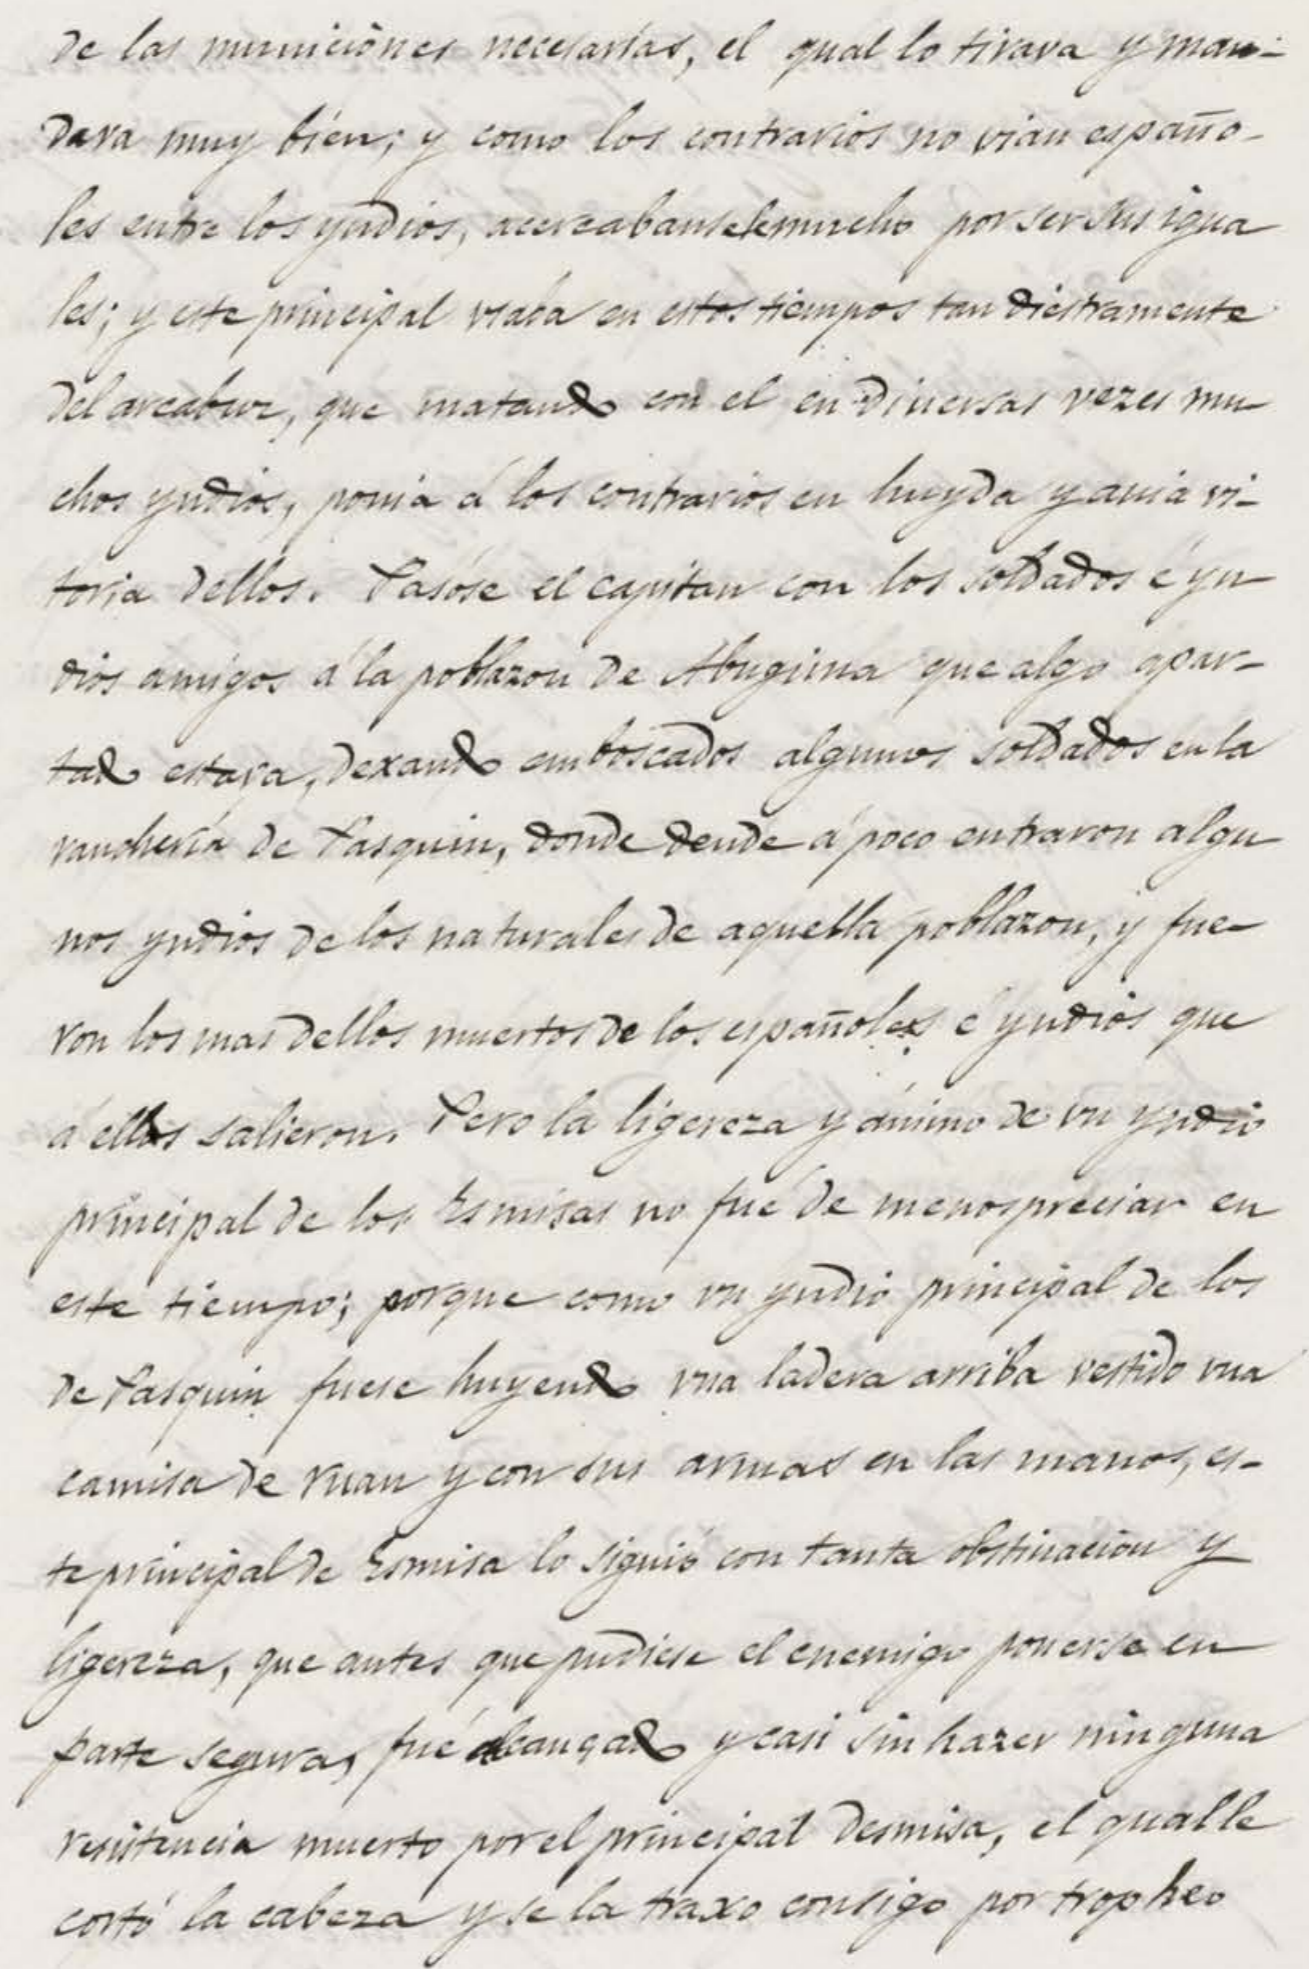 de las muniçiònes neçesarias, el qual lo tirava y man-
dava muy bièn; y como los contrarios no vian españo-
les entre los yndios, acercabanseles mucho por ser sus igua
les; y este principal vsaba en estos tiempos tan diestramente
del arcabuz, que matando con el en diversas vezes mu
chos yndios, ponia á los contrarios en huyda y auia vi-
toria dellos. Pasóse el capitan con los soldados é yn
dios amigos á la poblazon de Abugima que algo apar-
tado estava, dexando emboscados algunos soldados en la
rancheria de Pasquin, donde dende á poco entraron algu
nos yndios de los naturales de aquella poblazon, y fue-
ron los mas dellos muertos de los españoles é yndios que
á ellos salieron. Pero la ligereza y ánimo de vn yndio
principal de los Esmisas no fué de menospreciar en
este tiempo; porque como vn yndio principal de los
de Pasquin fuese huyendo vna ladera arriba vestido vna
camisa de ruan y con sus armas en las manos, es-
te principal de Esmisa lo siguió con tanta obstinacion y
ligereza, que antes que pudiese el enemigo ponerse en
parte segura, fué alcançado y casi sin hazer ninguna
resistencia muerto por el principal Desmisa, el qual le
cortó la cabeza y se la traxo consigo por tropheo